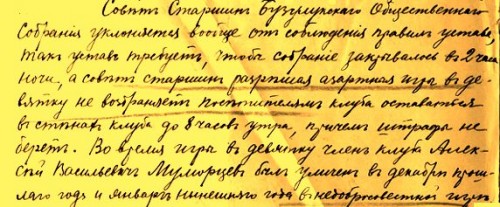 Совѣтъ Старшинъ Бузулукскаго Общественнаго
Собранія уклоняется вообще отъ соблюденія правилъ устава,
такъ уставъ требуетъ, чтобы собраніе закрывалось въ 2 часа
ночи, а совѣтъ старшинъ разрѣшая азартная игра въ де-
вятку не возбраняетъ посѣтителямъ клуба оставаться
въ стѣнахъ клуба до 8 часовъ утра, причемъ штрафа не
беретъ. Во время игра въ девятку членъ клуба Алек-
сѣй Васильевичъ Мулюрцевъ былъ уличенъ въ декабрѣ прош-
лаго года и январѣ нынешняго года въ недобросовестной игрѣ